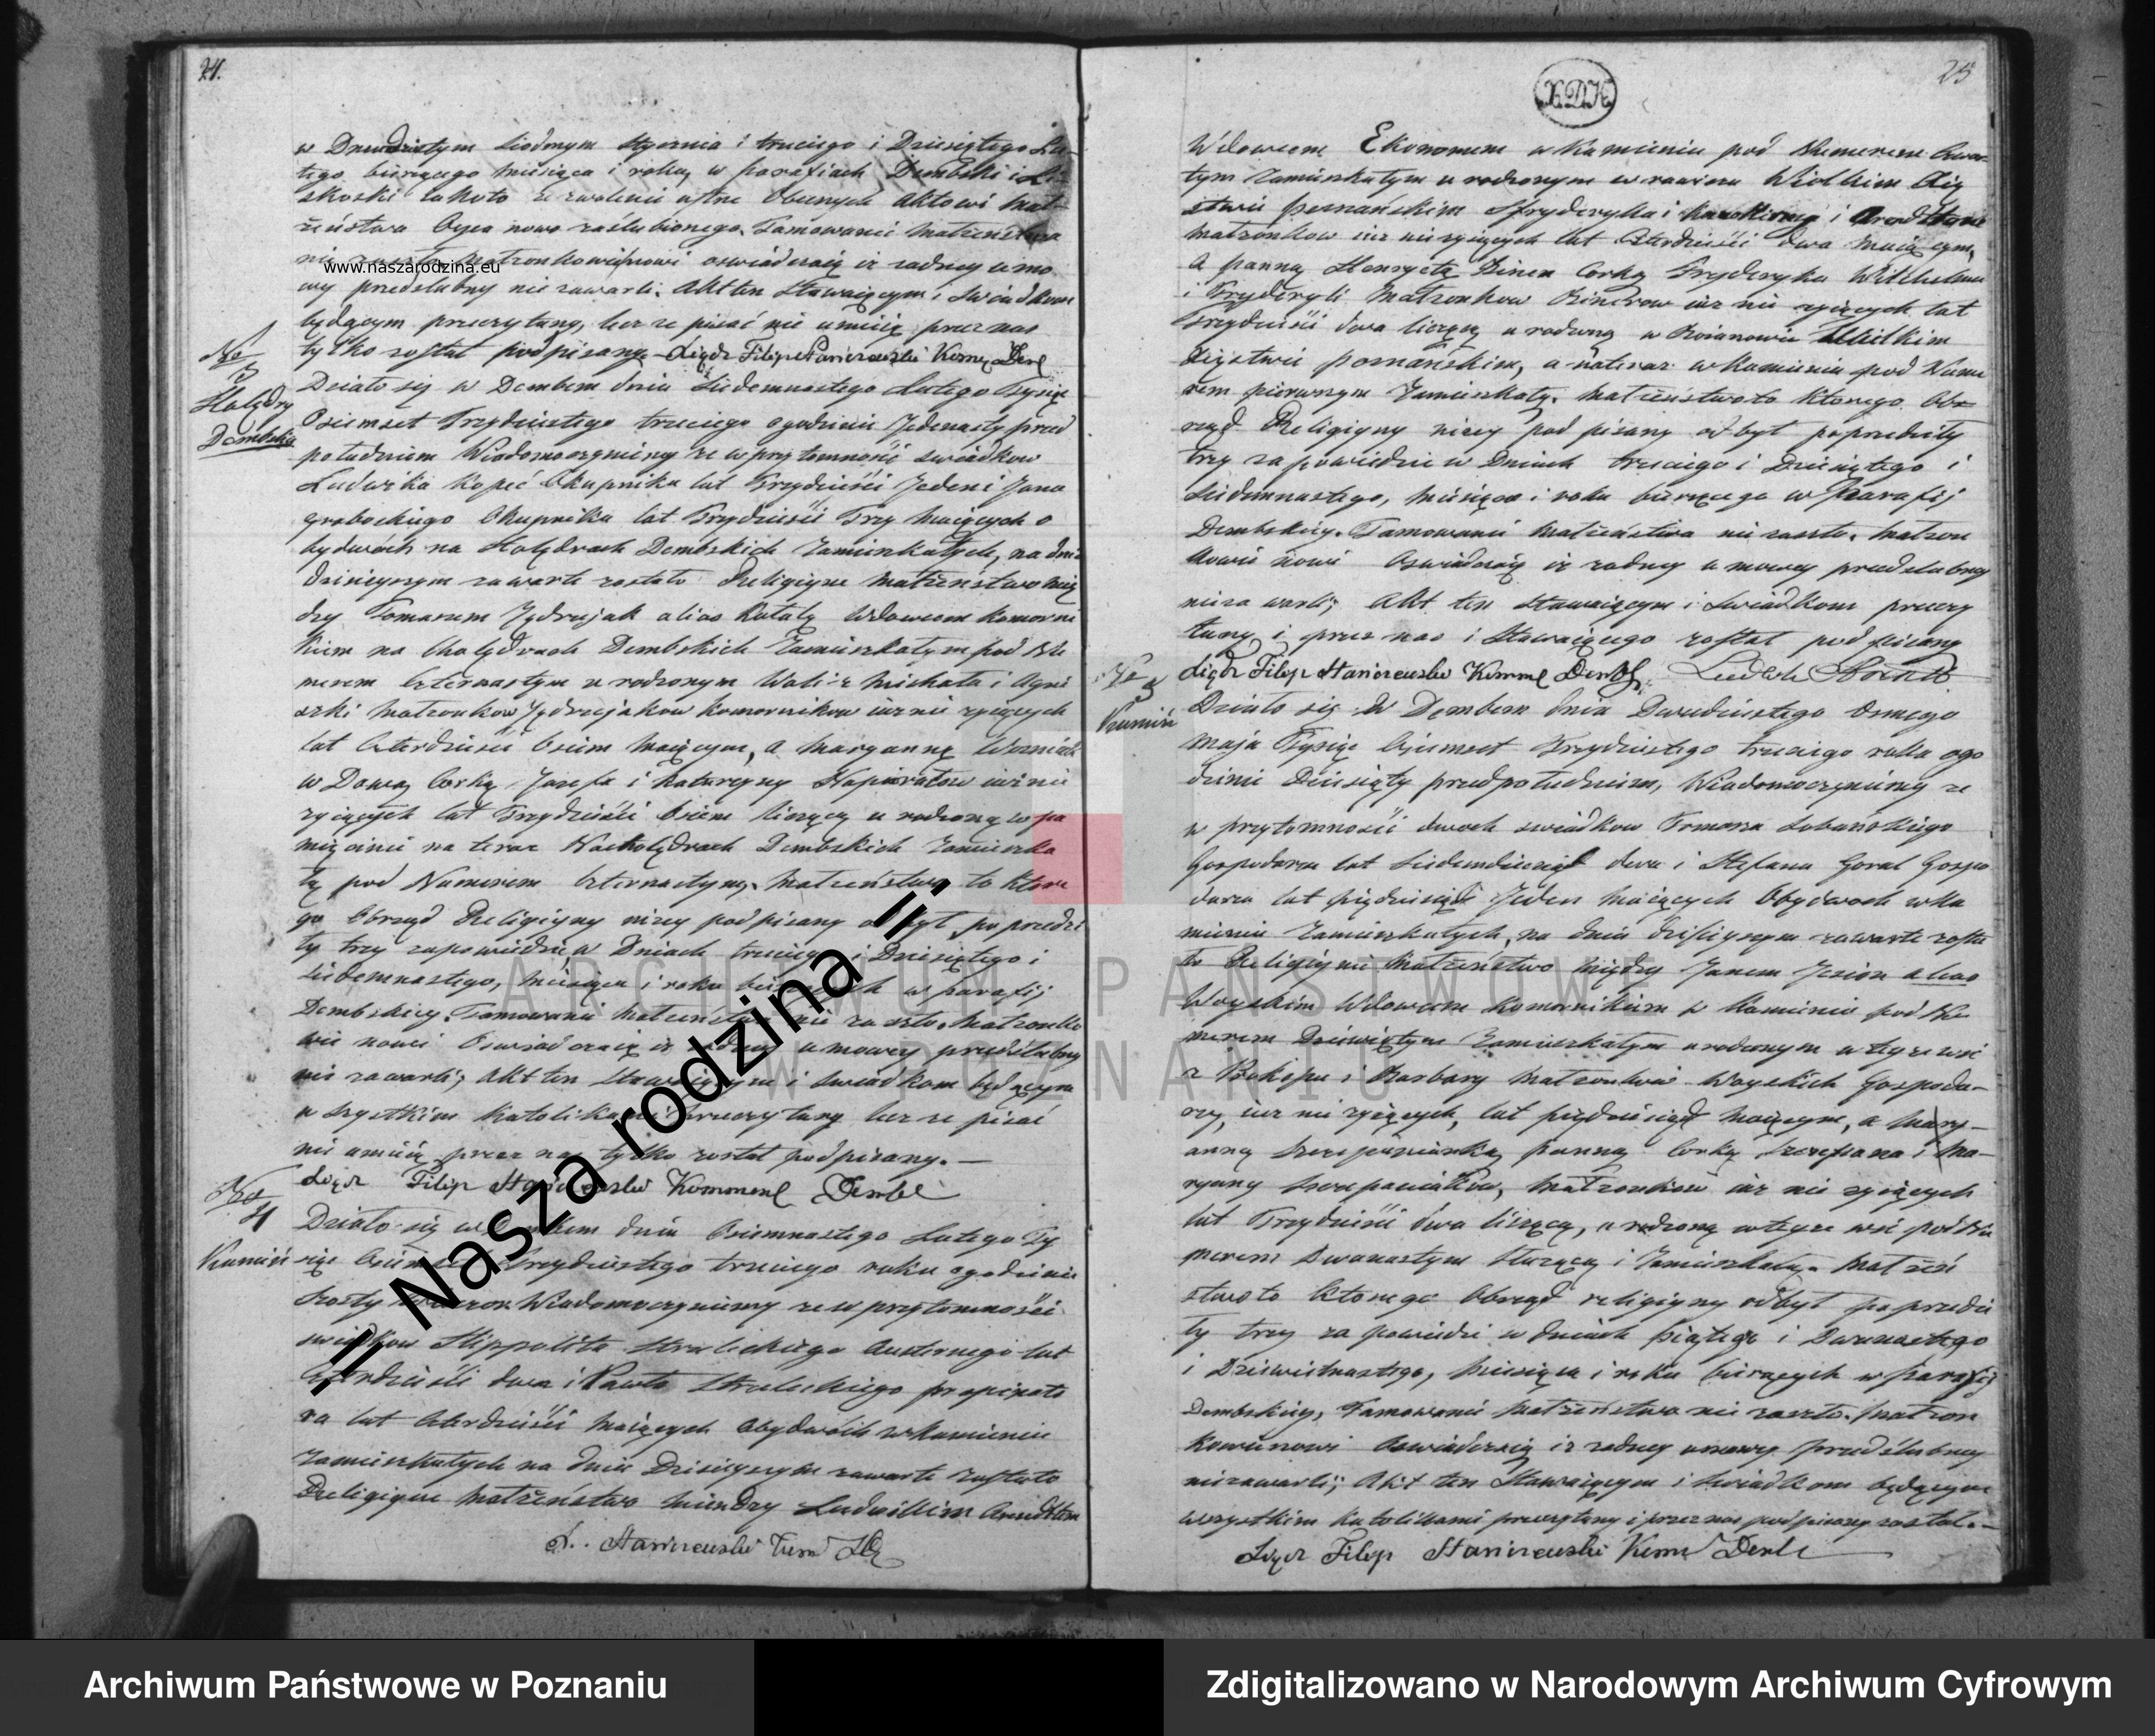 24.
w Dwudziestym Siodmym Stycznia i trzeciego i Dziesiątego Lu-
tego, bieżącego miesiąca i roku, w parafiach Dembski i
zwolenie ustne Obecnych Aktowi Mał-
żeństwa Oyca nowo zaślubionego. Tamowanie Małżeństwa
nie zaszło, Małżonkowie nowi oswiadczaią iż żadney umo
wy przedslubny nie zawarli. Akt ten Stawaiącym i Swiadkom
będącym przeczytany, lecz że pisać nie umieią przez nas
tylko został podpisany - Xiądz Filip Staniszewski Komm Demb
No 3
Holędry Dembskie
Działo się w Dembem dnia Siedemnastego Lutego Tysiąc
Osiemset Trzydziestego trzeciego o godzinie Jedenasty przed
południem Wiadomo czyniemy że w przytomności swiadkow
Ludwika Kopeć Okupnika lat Trzydzieści Jeden i Jana
Grabockiego Okupnika lat Trzydzieści Trzy maiących o
bydwóch na Holędrach Dembskich Zamieszkałych, na dniu
dzisieyszym zawarte zostało Religiyne Małżeństwo mię
dzy Tomaszem Jędrzejak alias Ratalą Wdowcem Komorni
kiem na Cholędrach Dembskich Zamieszkałym pod Nu
merem Czternastym urodzonym Michała i Agni
szki Małżonkow Jędrzejakow Komornikow iuż nie żyiących
lat Czterdzieści Osiem maiącym, a Maryanną Wozniak
w Dową Corką Jozefa i Katarzyny iuż nie
żyiących lat Trzydzieści Osiem liczącą urodzoną w pa
mięcinie na teraz Na Cholędrach Dembskich Zamieszka
łą pod Numerem Czternastym. Małżeństwo to które
go Obrząd Religiyny niżey podpisany odbył poprzedzi
ły trzy zapowiedzie w Dniach trzeciego i Dziesiątego i
Siedemnastego, Miesiąca i roku bieżących w parafij
Dembskiey. Tamowanie Małżeństwa nie zaszło. Małżonko
wie nowi Oswiadczaią iż żadney umowy przedslubny
nie zawarli; Akt ten Stawaiącym i Swiadkom będącym
wszystkim Katolikami przeczytany lecz że pisać
nie umieią przez nas tylko został podpisany. -
Xiądz Filip Staniszewski Kommend Dembe
No 4
Kamień
Działo się w Dembem dnia Osiemnastego Lutego Ty
siąc Osiemset Trzydziestego trzeciego roku o godzinie
Szosty Wiadomo czyniemy że w przytomności
swiadkow Hippolita Straleckiego lat
Czterdzieści dwa i Pawła Straleckiego propinato
ra lat Czterdzieści maiących Obydwóch w Kamieniu
Zamieszkałych na dniu Dzisieyszym zawarte zostało
Religiyne Małżeństwo miendzy Ludwikiem Arendtem
F. Staniszewski Kom
25
X.D.K
Wdowcem Ekonomem w Kamieniu pod Numerem Czwar
tym zamieszkałym urodzonym w Wielkim Xię
stwie poznanskim Fryderyka i Karoliny i Arendtow
Małżonkow iuż nie żyiących lat Czterdzieści dwa maiącym,
a panną Henryetą Corką Fryderyka Wilhelma
i Fryderyki Małżonkow iuż nie żyiących lat
Trzydzieści dwa liczącą urodzoną w Wielkim
Xięstwie poznańskim, a na teraz w Kamieniu pod Nume
rem pierwszym Zamieszkałą. Małżeństwo to którego Ob
rząd Religiyny niżey pod pisany odbył poprzedziły
trzy zapowiedzie w Dniach trzeciego i Dziesiątego i
Siedemnastego, Miesiąca i roku bieżącego w Parafij
Dembskiey. Tamowanie Małżeństwa nie zaszło. Małżon
kowie nowi Oswiadczaią iż żadney umowy przedslubney
nie zawarli; Akt ten Stawaiącym i Swiadkom przeczy
tany i przez nas i Stawaiącego został podpisany
Xiądz Filip Staniszewski Komm Demb. Ludwik Arendt
No 5
Kamień
Działo się w Dembem dnia Dwudziestego Osmego
Maja Tysiąc Osiemset Trzydziestego trzeciego roku o go
dzinie Dziesiąty przed południem, Wiadomo czyniemy że
w przytomności dwoch swiadkow Tomasza Lobańskiego
Gospodarza lat Siedemdziesiąt dwa i Stefana Goral Gospo
darza lat pięćdziesiąt Jeden maiących Obydwoch w Ka
mieniu Zamieszkałych, na dniu dzisieyszym zawarte zosta
ło Religiyne Małżeństwo między Janem Jezior alias
Woyskim Wdowcem Komornikiem w Kamieniu pod Nu
merem Dziewiątym Zamieszkałym urodzonym w teyże wsi
z Prokopa i Barbary Małżonków Woyskich Gospoda-
rzy, iuż nie żyiących, lat pięćdziesiąt maiącym, a Mary-
anną Szczepaniaką panną Corką Szczepana i Ma-
ryanny Szczepaniakow, Małżonkow iuż nie żyiących
lat Trzydzieści dwa liczącą, urodzoną w teyże wsi pod Nu
merem Dwanastym Służącą i Zamieszkałą. Małżeń
stwo to którego Obrząd religiyny odbył poprzedzi
ły trzy zapowiedzi w dniach piątego i Dwunastego
i Dziewietnastego, Miesiąca i roku bieżących w Parafij
Dembskiey, Tamowanie Małżeństwa nie zaszło. Małżon
kowie nowi Oswiadczaią iż żadney umowy przedślubney
nie zawarli; Akt ten Stawaiącym i Swiadkom będącym
wszystkim Katolikami przeczytany i przez nas podpisany został. -
Xiądz Filip Staniszewski Komm Dembe
www.naszarodzina.eu
-= Nasza rodzina =-
ARCHIWUM PAŃSTWOWE
W POZNANIU
Archiwum Państwowe w Poznaniu
Zdigitalizowano w Narodowym Archiwum Cyfrowym